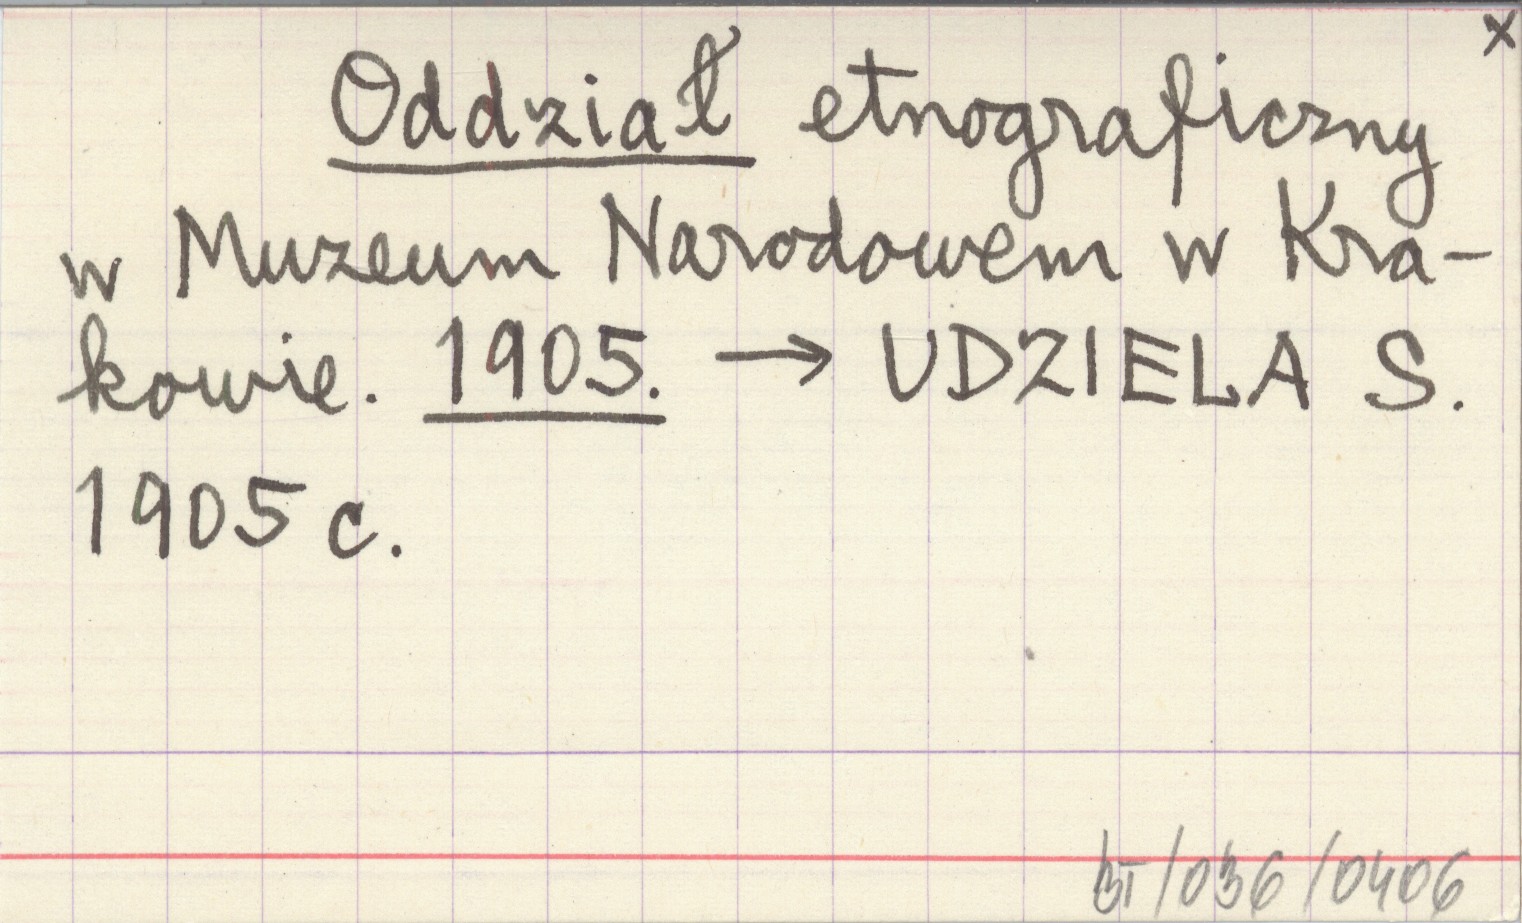 x
Oddział etnograficzny
w Muzeum Narodowem w Kra-
kowie. 1905. → UDZIELA S.
1905 c.
/036/0406